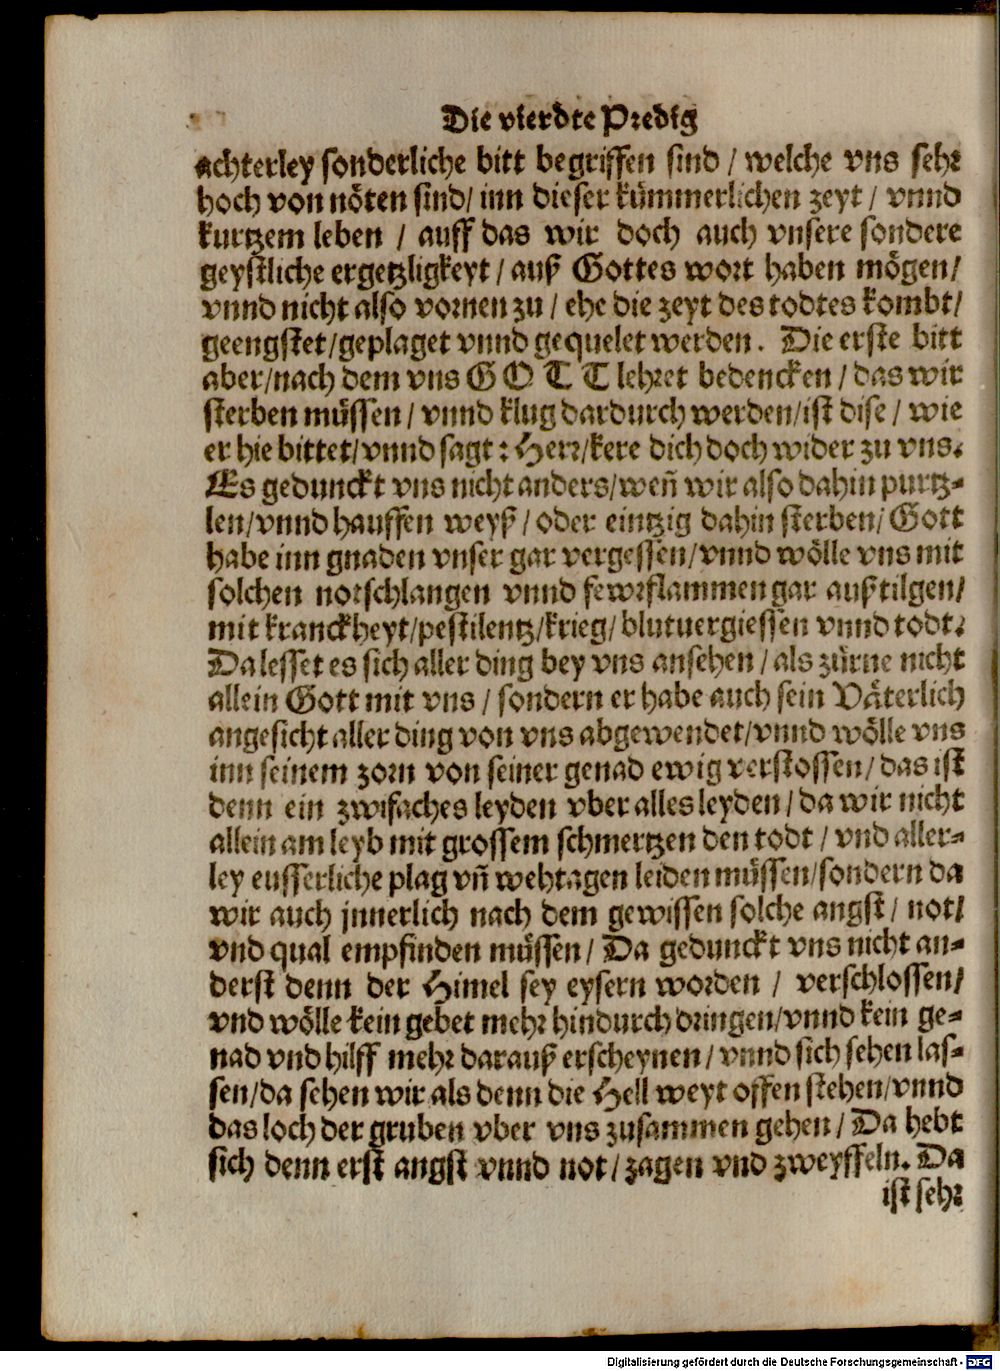 Die vierdte Predig
achterley sonderliche bitt begriffen sind / welche vns sehr
hoch von nöten sind/ inn dieser kümmerlichen zeyt / vnnd
kurtzem leben / auff das wir doch auch vnsere sondere
geystliche ergetzligkeyt / auß Gottes wort haben mögen/
vnnd nicht also vornen zu / ehe die zeyt des todtes kombt/
geengstet/geplaget vnnd gequelet werden. Die erste bitt
aber/nach dem vns GOTT lehret bedencken / das wir
sterben müssen / vnnd klug dardurch werden/ist dise / wie
er hie bittet/vnnd sagt: Herr/kere dich doch wider zu vns.
Es gedunckt vns nicht anders/weñ wir also dahin purtz-
len/vnnd hauffen weyß / oder eintzig dahin sterben/ Gott
habe inn gnaden vnser gar vergessen/vnnd wölle vns mit
solchen notschlangen vnnd fewrflammen gar außtilgen/
mit kranckheyt/pestilentz/krieg/blutuergiessen vnnd todt.
Da lesset es sich aller ding bey vns ansehen / als zürne nicht
allein Gott mit vns / sondern er habe auch sein Väterlich
angesicht aller ding von vns abgewendet/vnnd wölle vns
inn seinem zorn von seiner genad ewig verstossen/ das ist
denn ein zwifaches leyden vber alles leyden / da wir nicht
allein am leyb mit grossem schmertzen den todt / vnd aller-
ley eusserliche plag vñ wehtagen leiden müssen/sondern da
wir auch jnnerlich nach dem gewissen solche angst/ not/
vnd qual empfinden müssen/ Da gedunckt vns nicht an-
derst denn der Himel sey eysern worden / verschlossen/
vnd wölle kein gebet mehr hindurch dringen/vnnd kein ge-
nad vnd hilff mehr darauß erscheynen/ vnnd sich sehen las-
sen/da sehen wir als denn die Hell weyt offen stehen/vnnd
das loch der gruben vber vns zusammen gehen / Da hebt
sich denn erst angst vnnd not / zagen vnd zweyffeln. Da
ist sehr
Digitalisierung gefördert durch die Deutsche Forschungsgemeinschaft - DFG